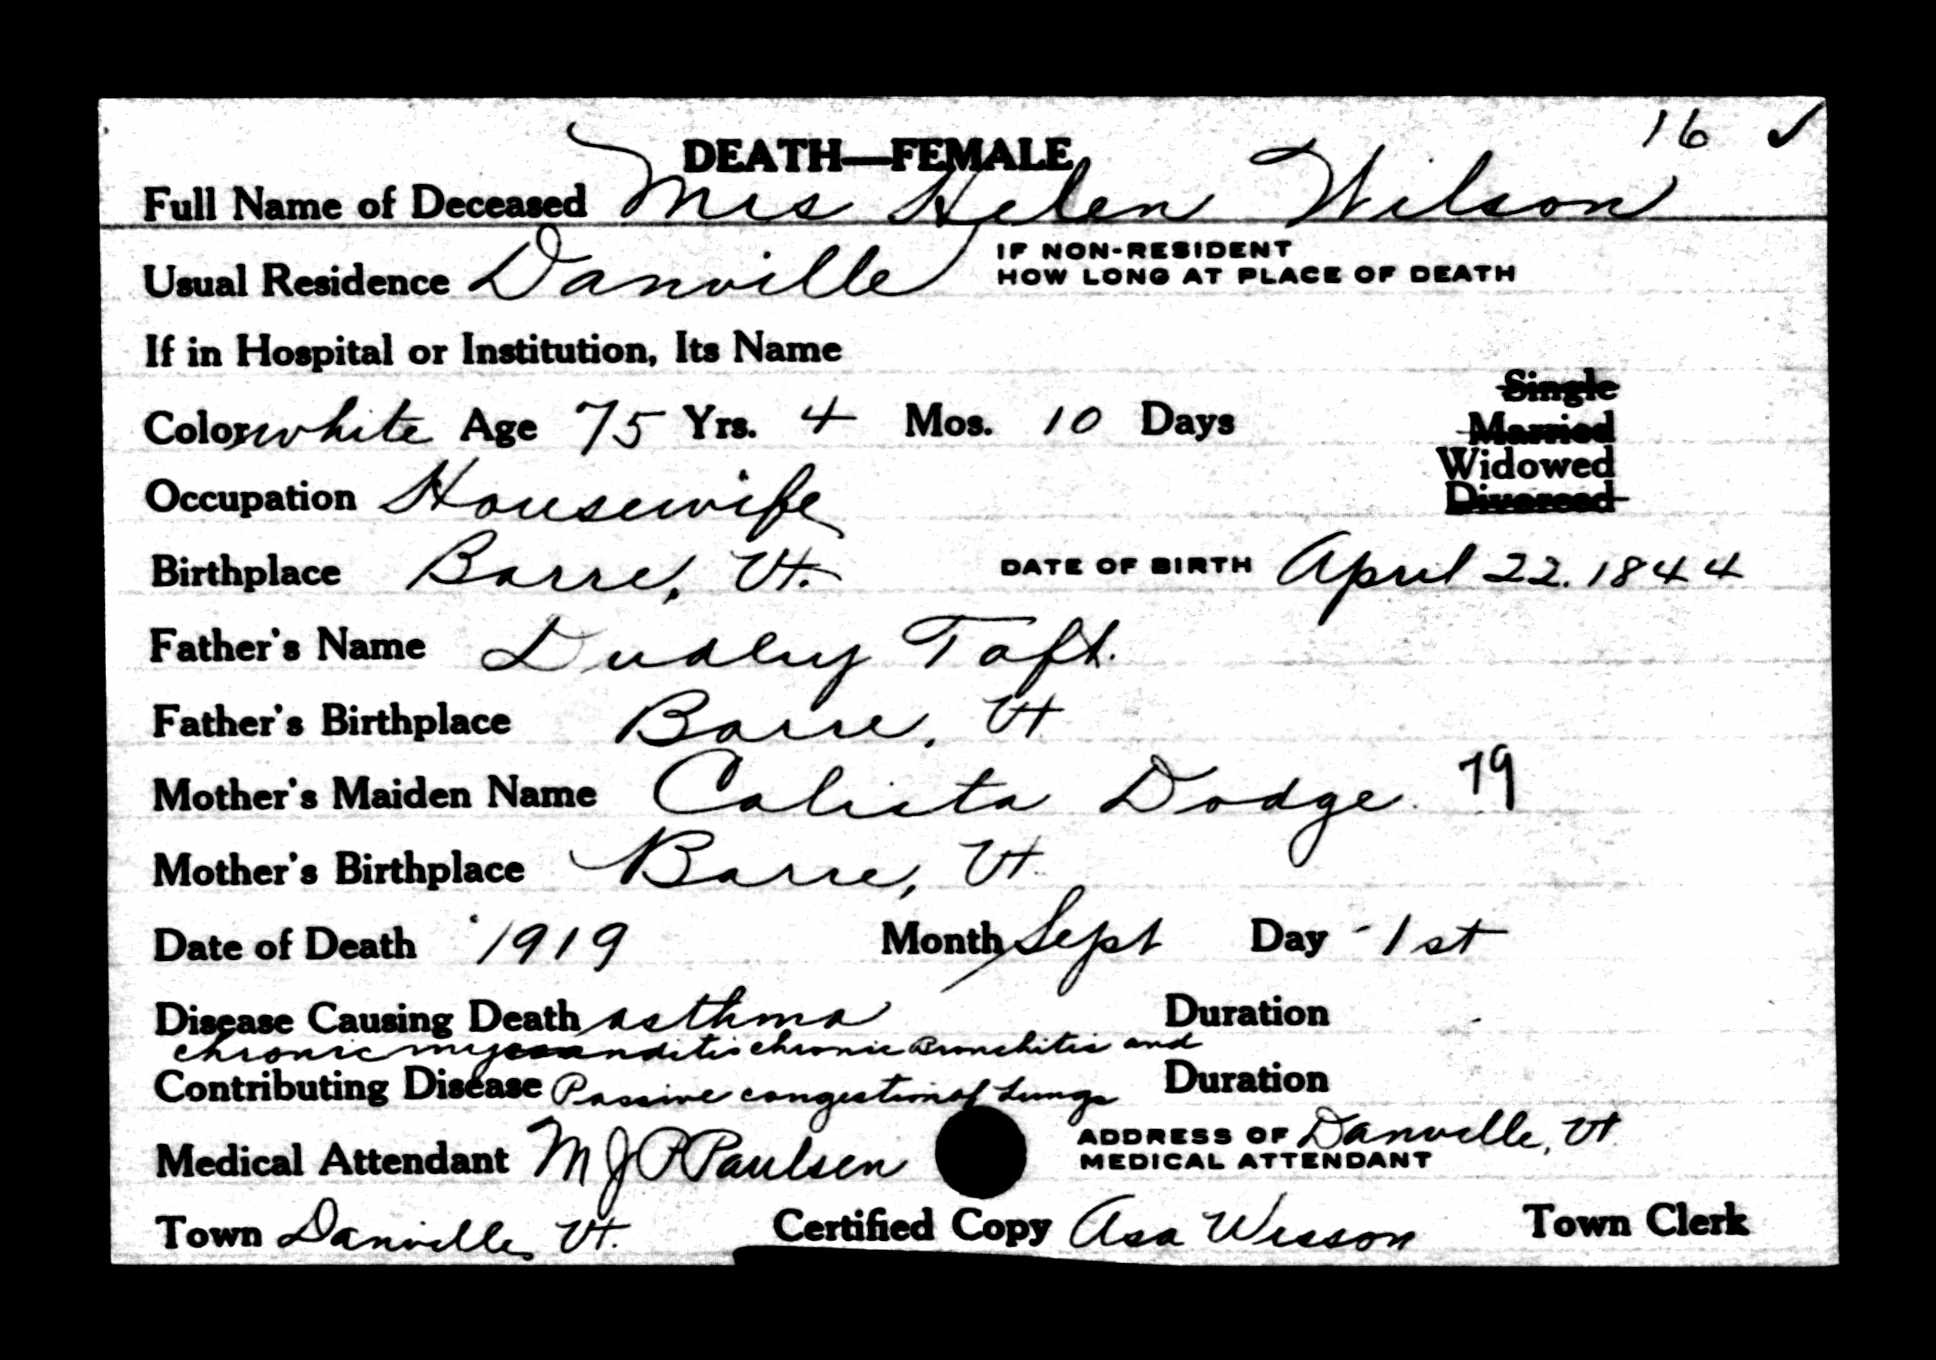 16 ✓
DEATH—FEMALE
Full Name of Deceased Mrs Helen Wilson
Usual Residence Danville IF NON-RESIDENT HOW LONG AT PLACE OF DEATH
If in Hospital or Institution, Its Name
Single
Color white Age 75 Yrs. 4 Mos. 10 Days Married
Widowed
Occupation Housewife Divorced
Birthplace Barre, Vt. DATE OF BIRTH April 22. 1844
Father's Name Dudley Taft.
Father's Birthplace Barre, Vt
Mother's Maiden Name Calista Dodge. 79
Mother's Birthplace Barre, Vt.
Date of Death 1919 Month Sept Day 1st
Disease Causing Death asthma Duration
chronic chronic Bronchitis and
Contributing Disease Passive congestion of Lungs Duration
Medical Attendant M J P Paulsen ADDRESS OF MEDICAL ATTENDANT Danville, Vt
Town Danville, Vt. Certified Copy Asa Wesson Town Clerk